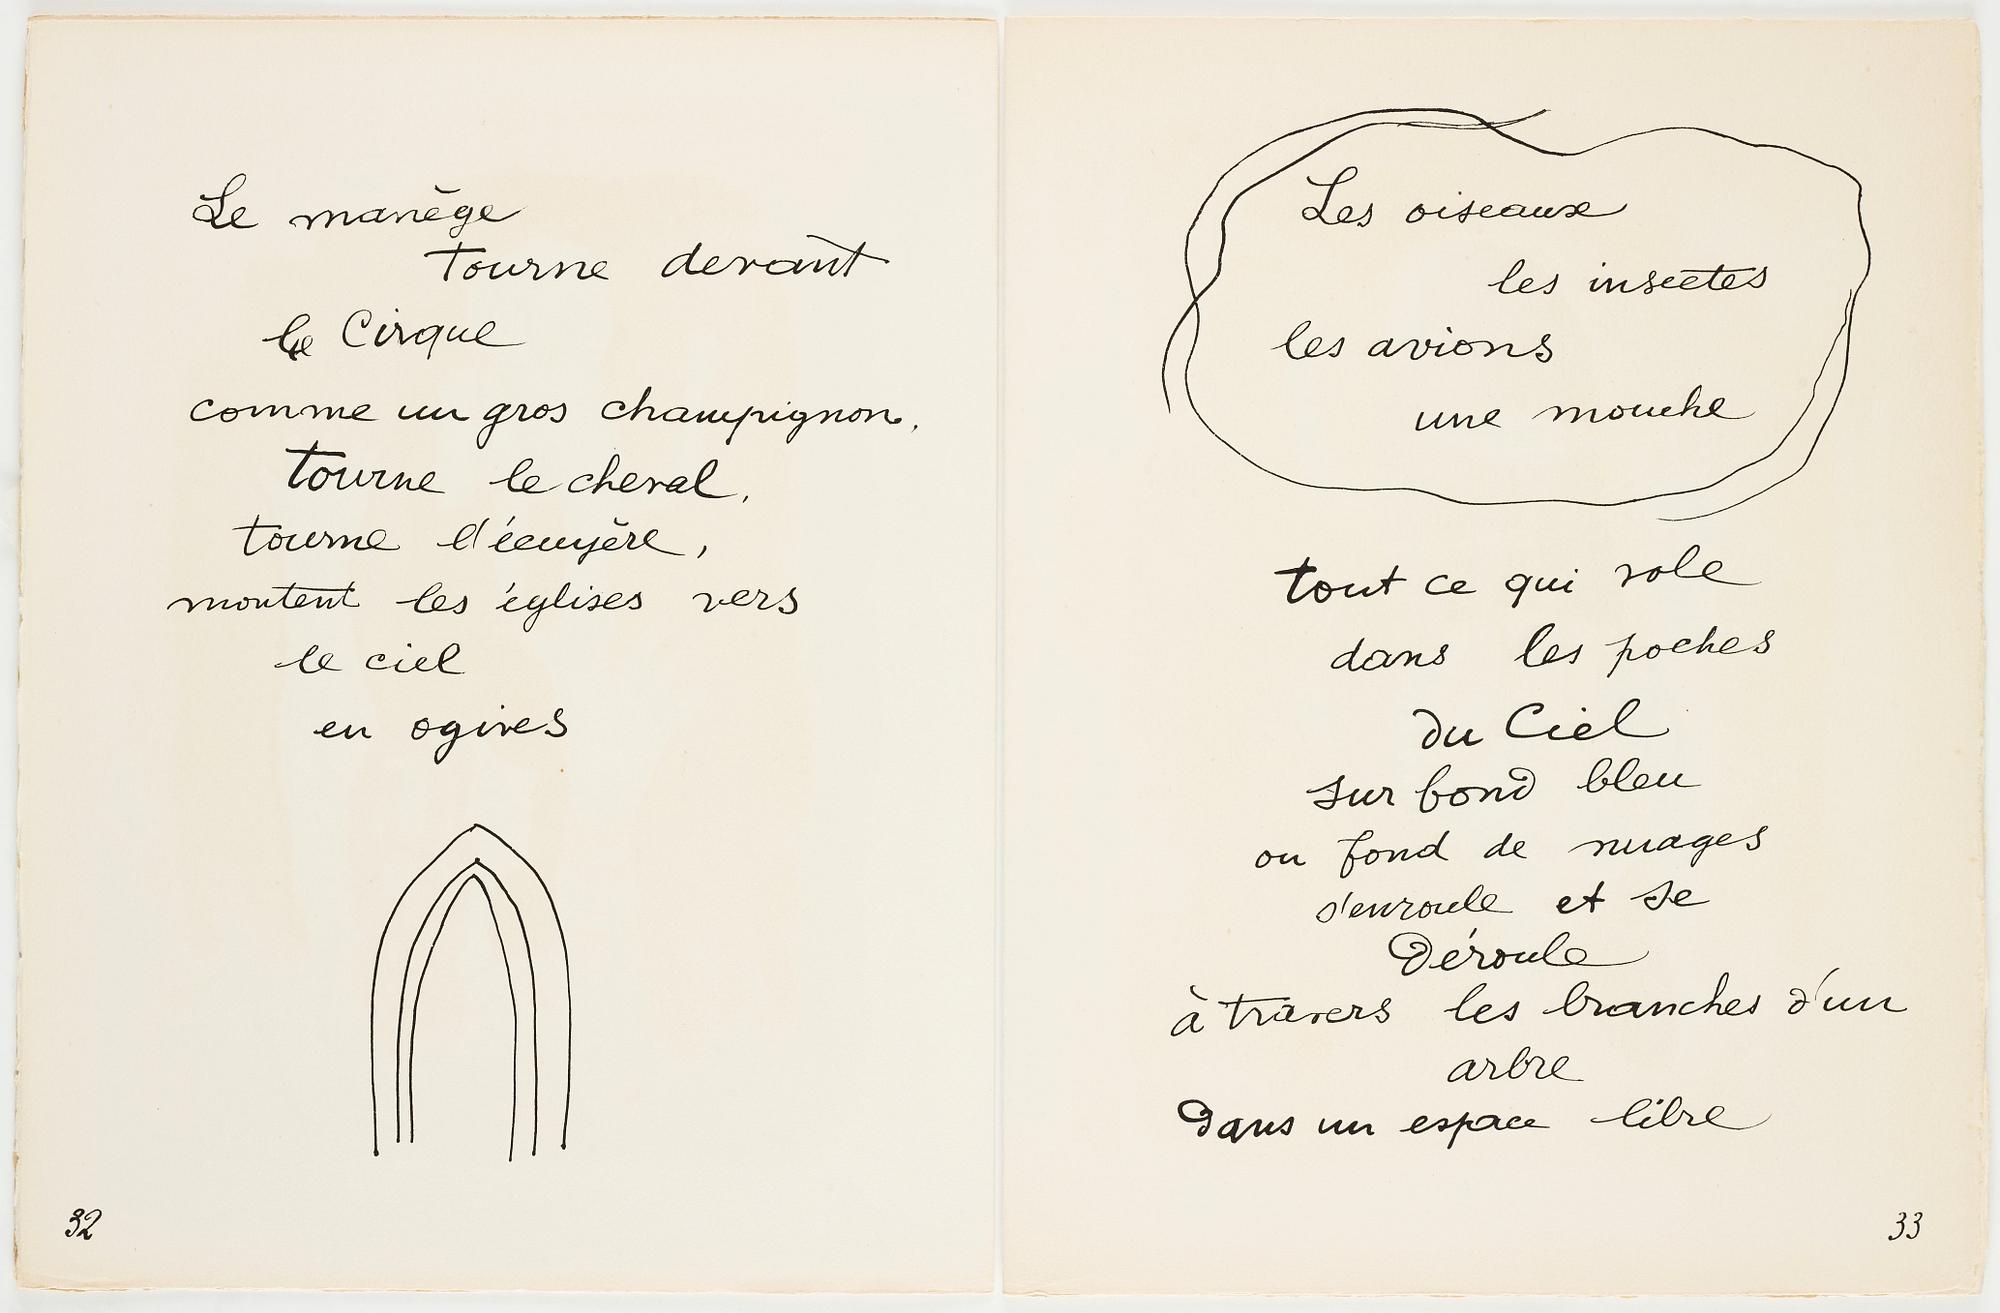 Le manège
tourne devant
le Cirque
comme un gros champignon,
tourne le cheval,
tourne l'écuyère,
montent les églises vers
le ciel
en ogives
32
Les oiseaux
les insectes
les avions
une mouche
tout ce qui vole
dans les poches
du Ciel
sur fond bleu
ou fond de nuages
s'enroule et se
Déroule
à travers les branches d'un
arbre
Dans un espace libre
33